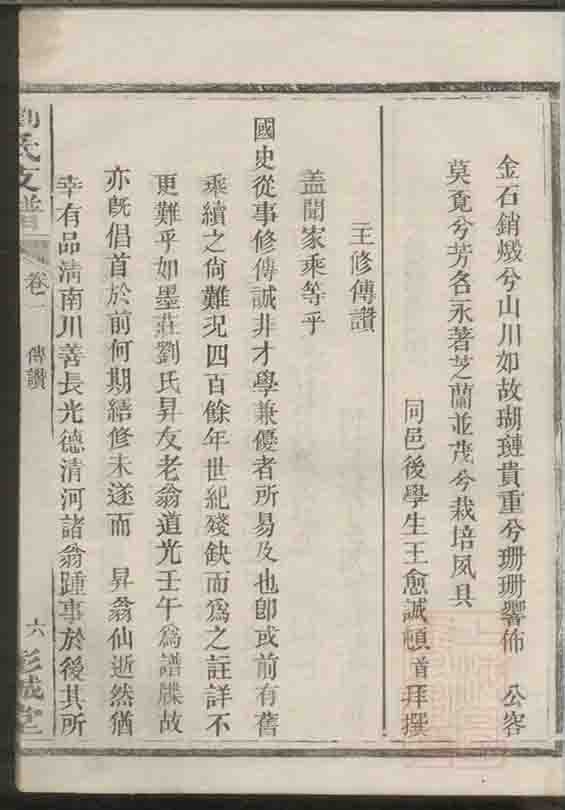 金石銷燬兮山川如故瑚璉貴重兮珊珊響佈　公容
莫覔兮芳名永著芝蘭並茂兮栽培夙具
同邑後學生王愈誠頓首拜撰
王修傳讃
盖聞家乘等乎
國史從事修傳誠非才學兼優者所易及也卽或前有舊
乘續之尙難况四百餘年世紀殘缺而爲之註詳不
更難乎如墨莊劉氏昇友老翁道光壬午爲譜牒故
亦旣倡首於前何期繕修未遂而　昇翁仙逝然猶
幸有品淸南川善長光德淸河諸翁踵事於後其所
劉氏支譜
卷一　傳讃
六
彭城堂